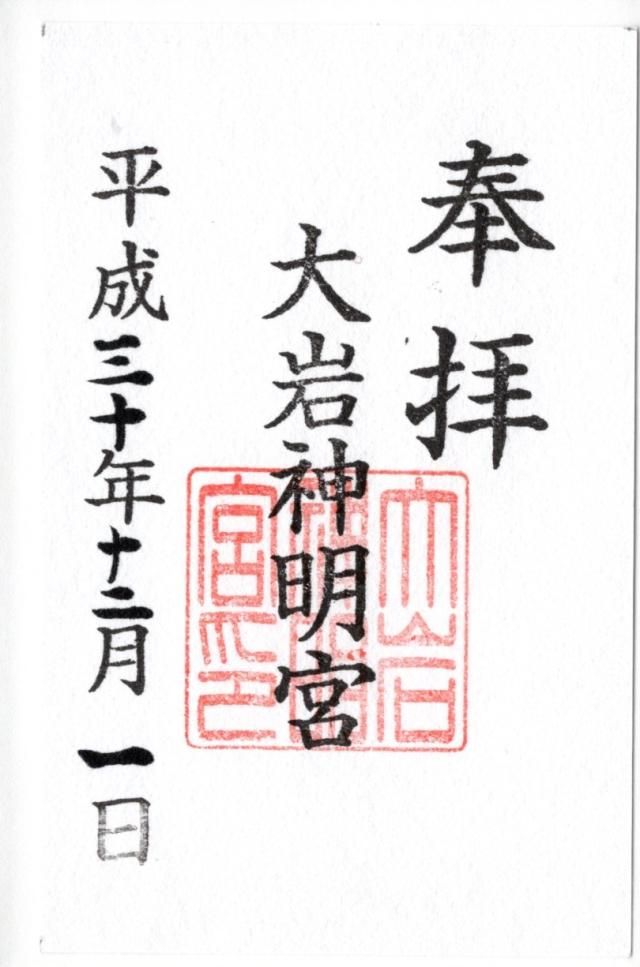 奉拝
大岩神明宮
平成三十年十二月一日
大岩
神明
宮印